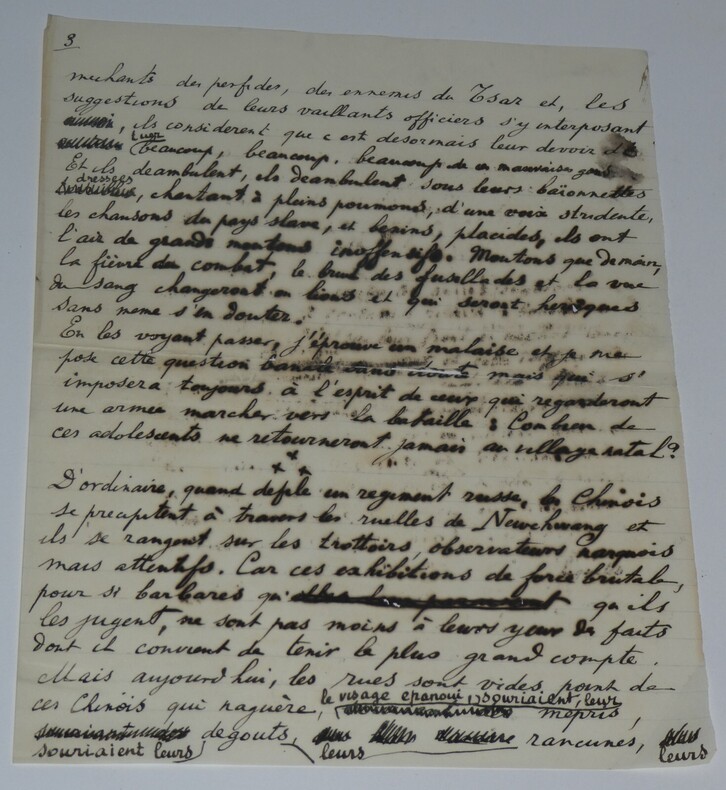 3
mechants des perfides, des ennemis du Tsar et, les
suggestions de leurs vaillants officiers s'y interposant
, ils considerent que c est desormais leur devoir de
leur
beaucoup, beaucoup, beaucoup de en mauvaise
Et ils deambulent, ils deambulent sous leurs baïonnettes
dressees
, chantant à pleins poumons, d'une voix stridente,
les chansons du pays slave, et benins, placides, ils ont
l'air de grands moutons inoffensifs. Moutons que demain,
la fièvre du combat, le bruit des fusillades et la vue
du sang changeront en lions et qui seront heroïques
sans meme s'en douter.
En les voyant passer, j'éprouve un malaise et je me
pose cette question banale mais qui s'
imposera toujours à l'esprit de ceux qui regarderont
une armee marcher vers la bataille : Combien de
ces adolescents ne retourneront jamais au village natal ?
+ + +
D'ordinaire, quand defile un regiment russe, les Chinois
se precipitent à travers les ruelles de Newchwang et
ils se rangent sur les trottoirs, observateurs narquois
mais attentifs. Car ces exhibitions de force brutale,
pour si barbares qu' qu'ils
les jugent, ne sont pas moins à leurs yeux des faits
dont il convient de tenir le plus grand compte.
Mais aujourd'hui, les rues sont vides, point de
le visage epanoui, souriaient, leur
ces Chinois qui naguère, mepris,
degouts, rancunes,
souriaient leurs leurs leurs